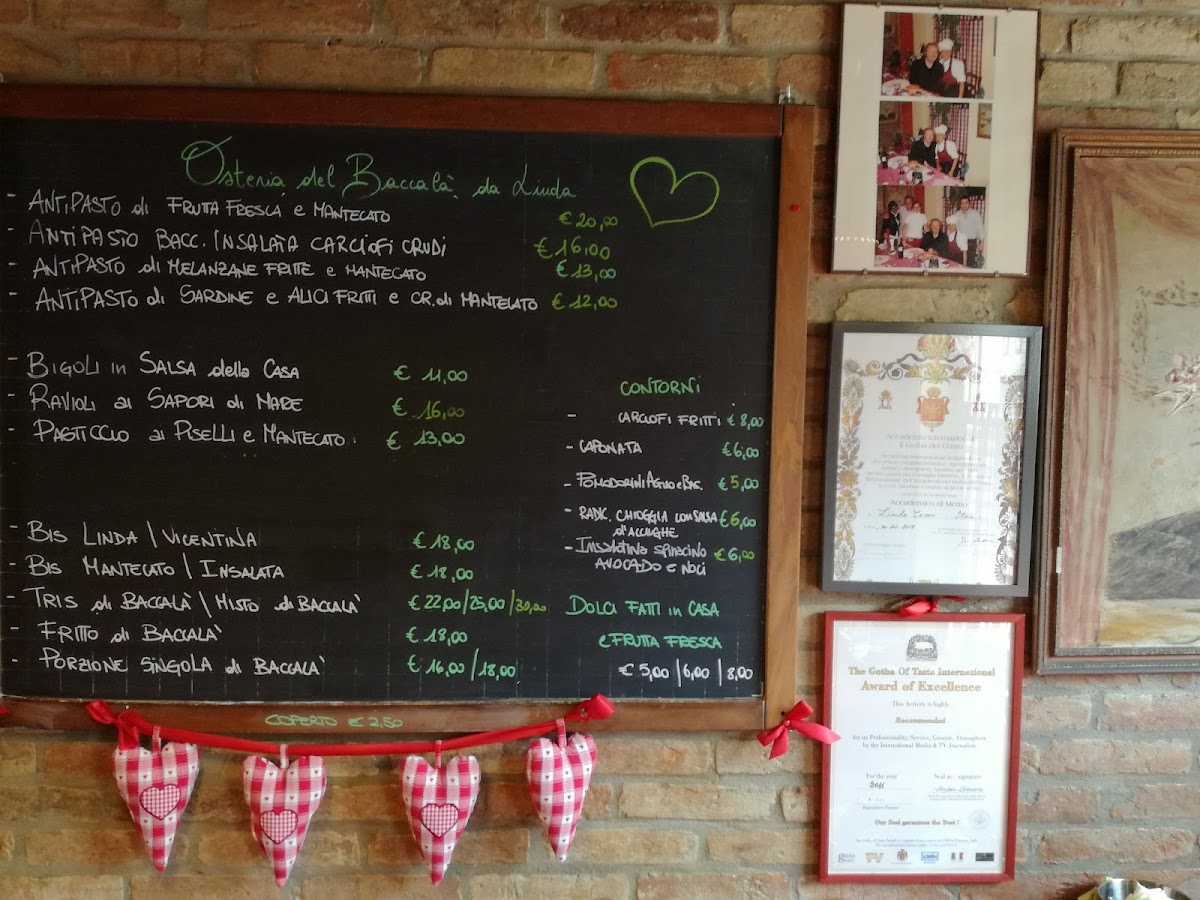 Osteria del Baccalà da Linda
- ANTIPASTO di FRUTTA FRESCA e MANTECATO €20,00
- ANTIPASTO BACC. INSALATA CARCIOFI CRUDI €16,00
- ANTIPASTO di MELANZANE FRITTE e MANTECATO €13,00
- ANTIPASTO di SARDINE e ALICI FRITTI e CR. di MANTECATO €12,00
- BIGOLI in SALSA della CASA € 11,00
- RAVIOLI ai SAPORI di MARE € 16,00
- PASTICCIO ai PISELLI e MANTECATO. € 13,00
- BIS LINDA / VICENTINA € 18,00
- BIS MANTECATO / INSALATA € 18,00
- TRIS di BACCALÀ / MISTO di BACCALÀ € 22,00/25,00/30,00
- FRITTO di BACCALÀ € 18,00
- PORZIONE SINGOLA di BACCALÀ € 16,00/18,00
CONTORNI
- CARCIOFI FRITTI € 8,00
- CAPONATA €6,00
- POMODORINI AGLIO e BAS. €5,00
- RADIC. CHIOGGIA CON SALSA €6,00
d'ACCIUGHE
- INSALATINA SPINACINO €6,00
AVOCADO e NOCI
DOLCI FATTI in CASA
e FRUTTA FRESCA
€ 5,00 / 6,00 / 8,00
COPERTO € 2,50
Accademia Internazionale
Il Gotha del Gusto
Accademico di Merito
The Gotha Of Taste International
Award of Excellence
This Activity is highly
Recommended
for its Professionality, Service, Cuisine, Atmosphere
by the International Media & TV Journalists
For the year
Seal and signature
Our Seal garantees the Best !